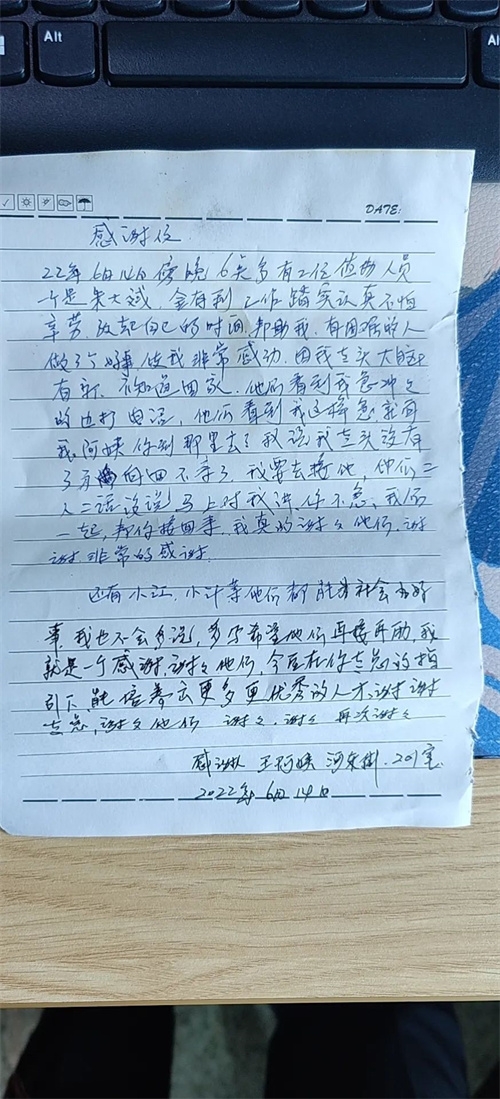 Alt
DATE:
感谢信
22年6月14日傍晚6点多有二位值勤人员
一个是朱士斌、金存利工作踏实认真不怕
辛劳.放起自己的时间,帮助我.有困难的人
做了个好事,使我非常感动.因我老头大脑
有病.不知道回家.他们看到我急冲冲
的边打电话,他们看到我这样急,就问
我阿姨你到那里去了我说我老头没有
了方向回不来了,我要去接他,他们二
人二话没说马上对我讲,你不急,我们
一起,帮你接回来,我真的谢谢他们.谢
谢非常的感谢.
还有小江,小计等他们都能为社会办好
事我也不会多说,多字希望他们再接再励.我
就是一个感谢.谢谢他们.今后在你老总的指
引下,能培养出更多更优秀的人才.谢谢谢
老总,谢谢他们 谢谢.谢谢 再次谢谢
感谢人 王阿姨 201室.
2022年6月14日